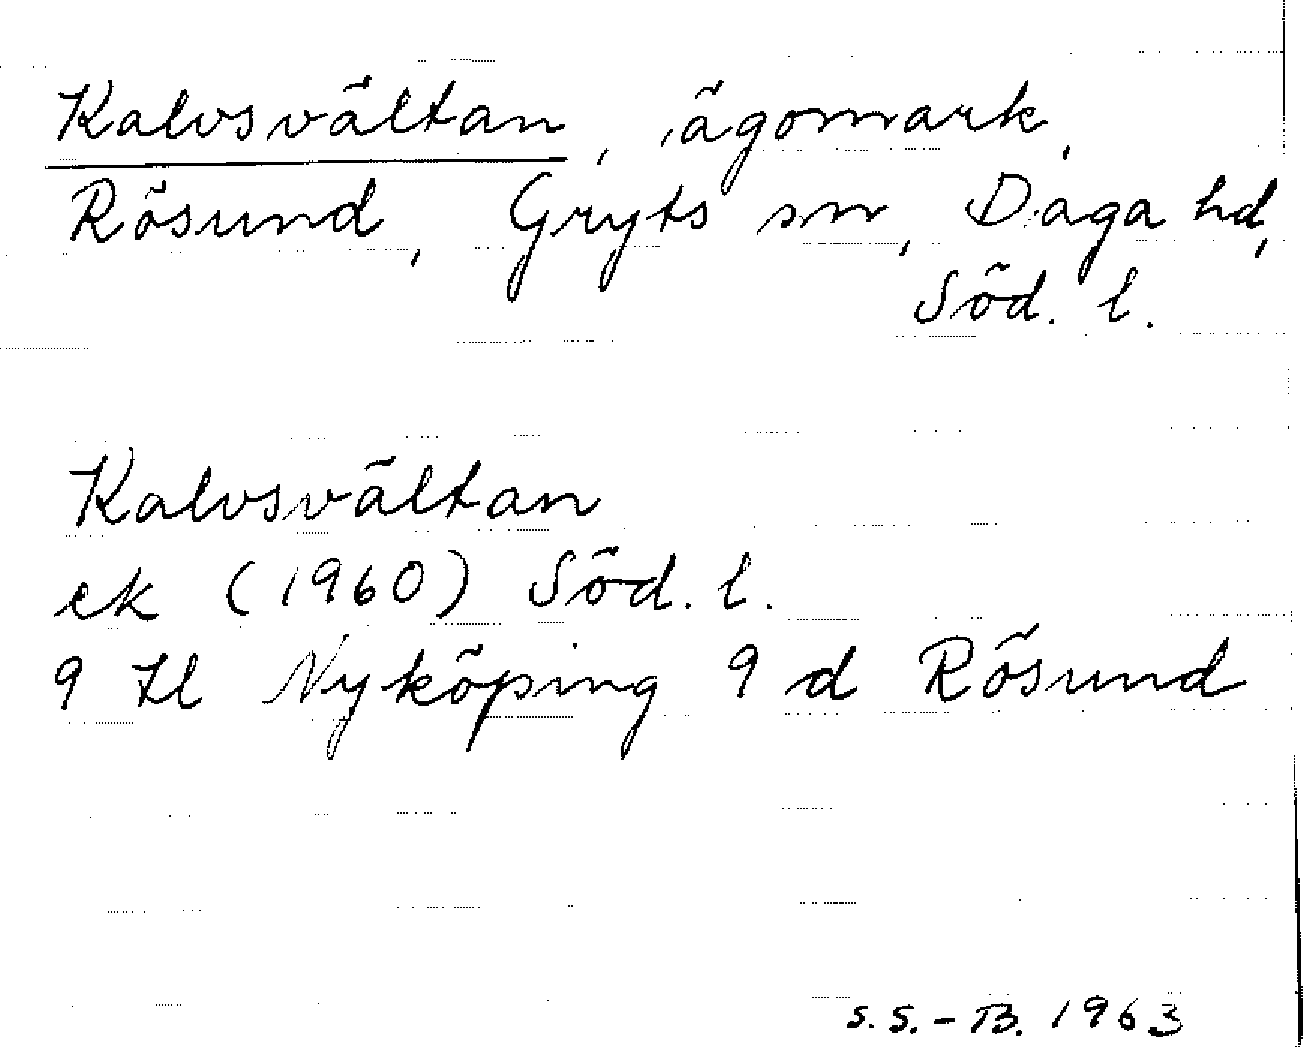 Kalvsvältan, ägomark,
Rösund, Gryts sn, Daga hd,
Söd. l.
Kalvsvältan
ek (1960) Söd. l.
9 H Nyköping 9 d Rösund
S.S.-B. 1963